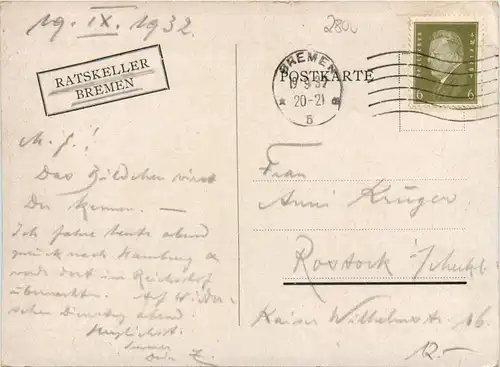 19. IX. 1932.
2800
RATSKELLER
BREMEN
POSTKARTE
BREMEN
19.9.32
20-21
* 5
6 6
M. J.!
Das Bildchen wirst
Du kennen. —
Ich fahre heute abend
zurück nach Hamburg &
werde dort im Reichshof
übernachten. Auf Wieder-
sehen Dienstag abend.
Herzlichst
immer
Dein
Frau
Anni Krüger
Rostock
Kaiser Wilhelmstr. 16.
12.-